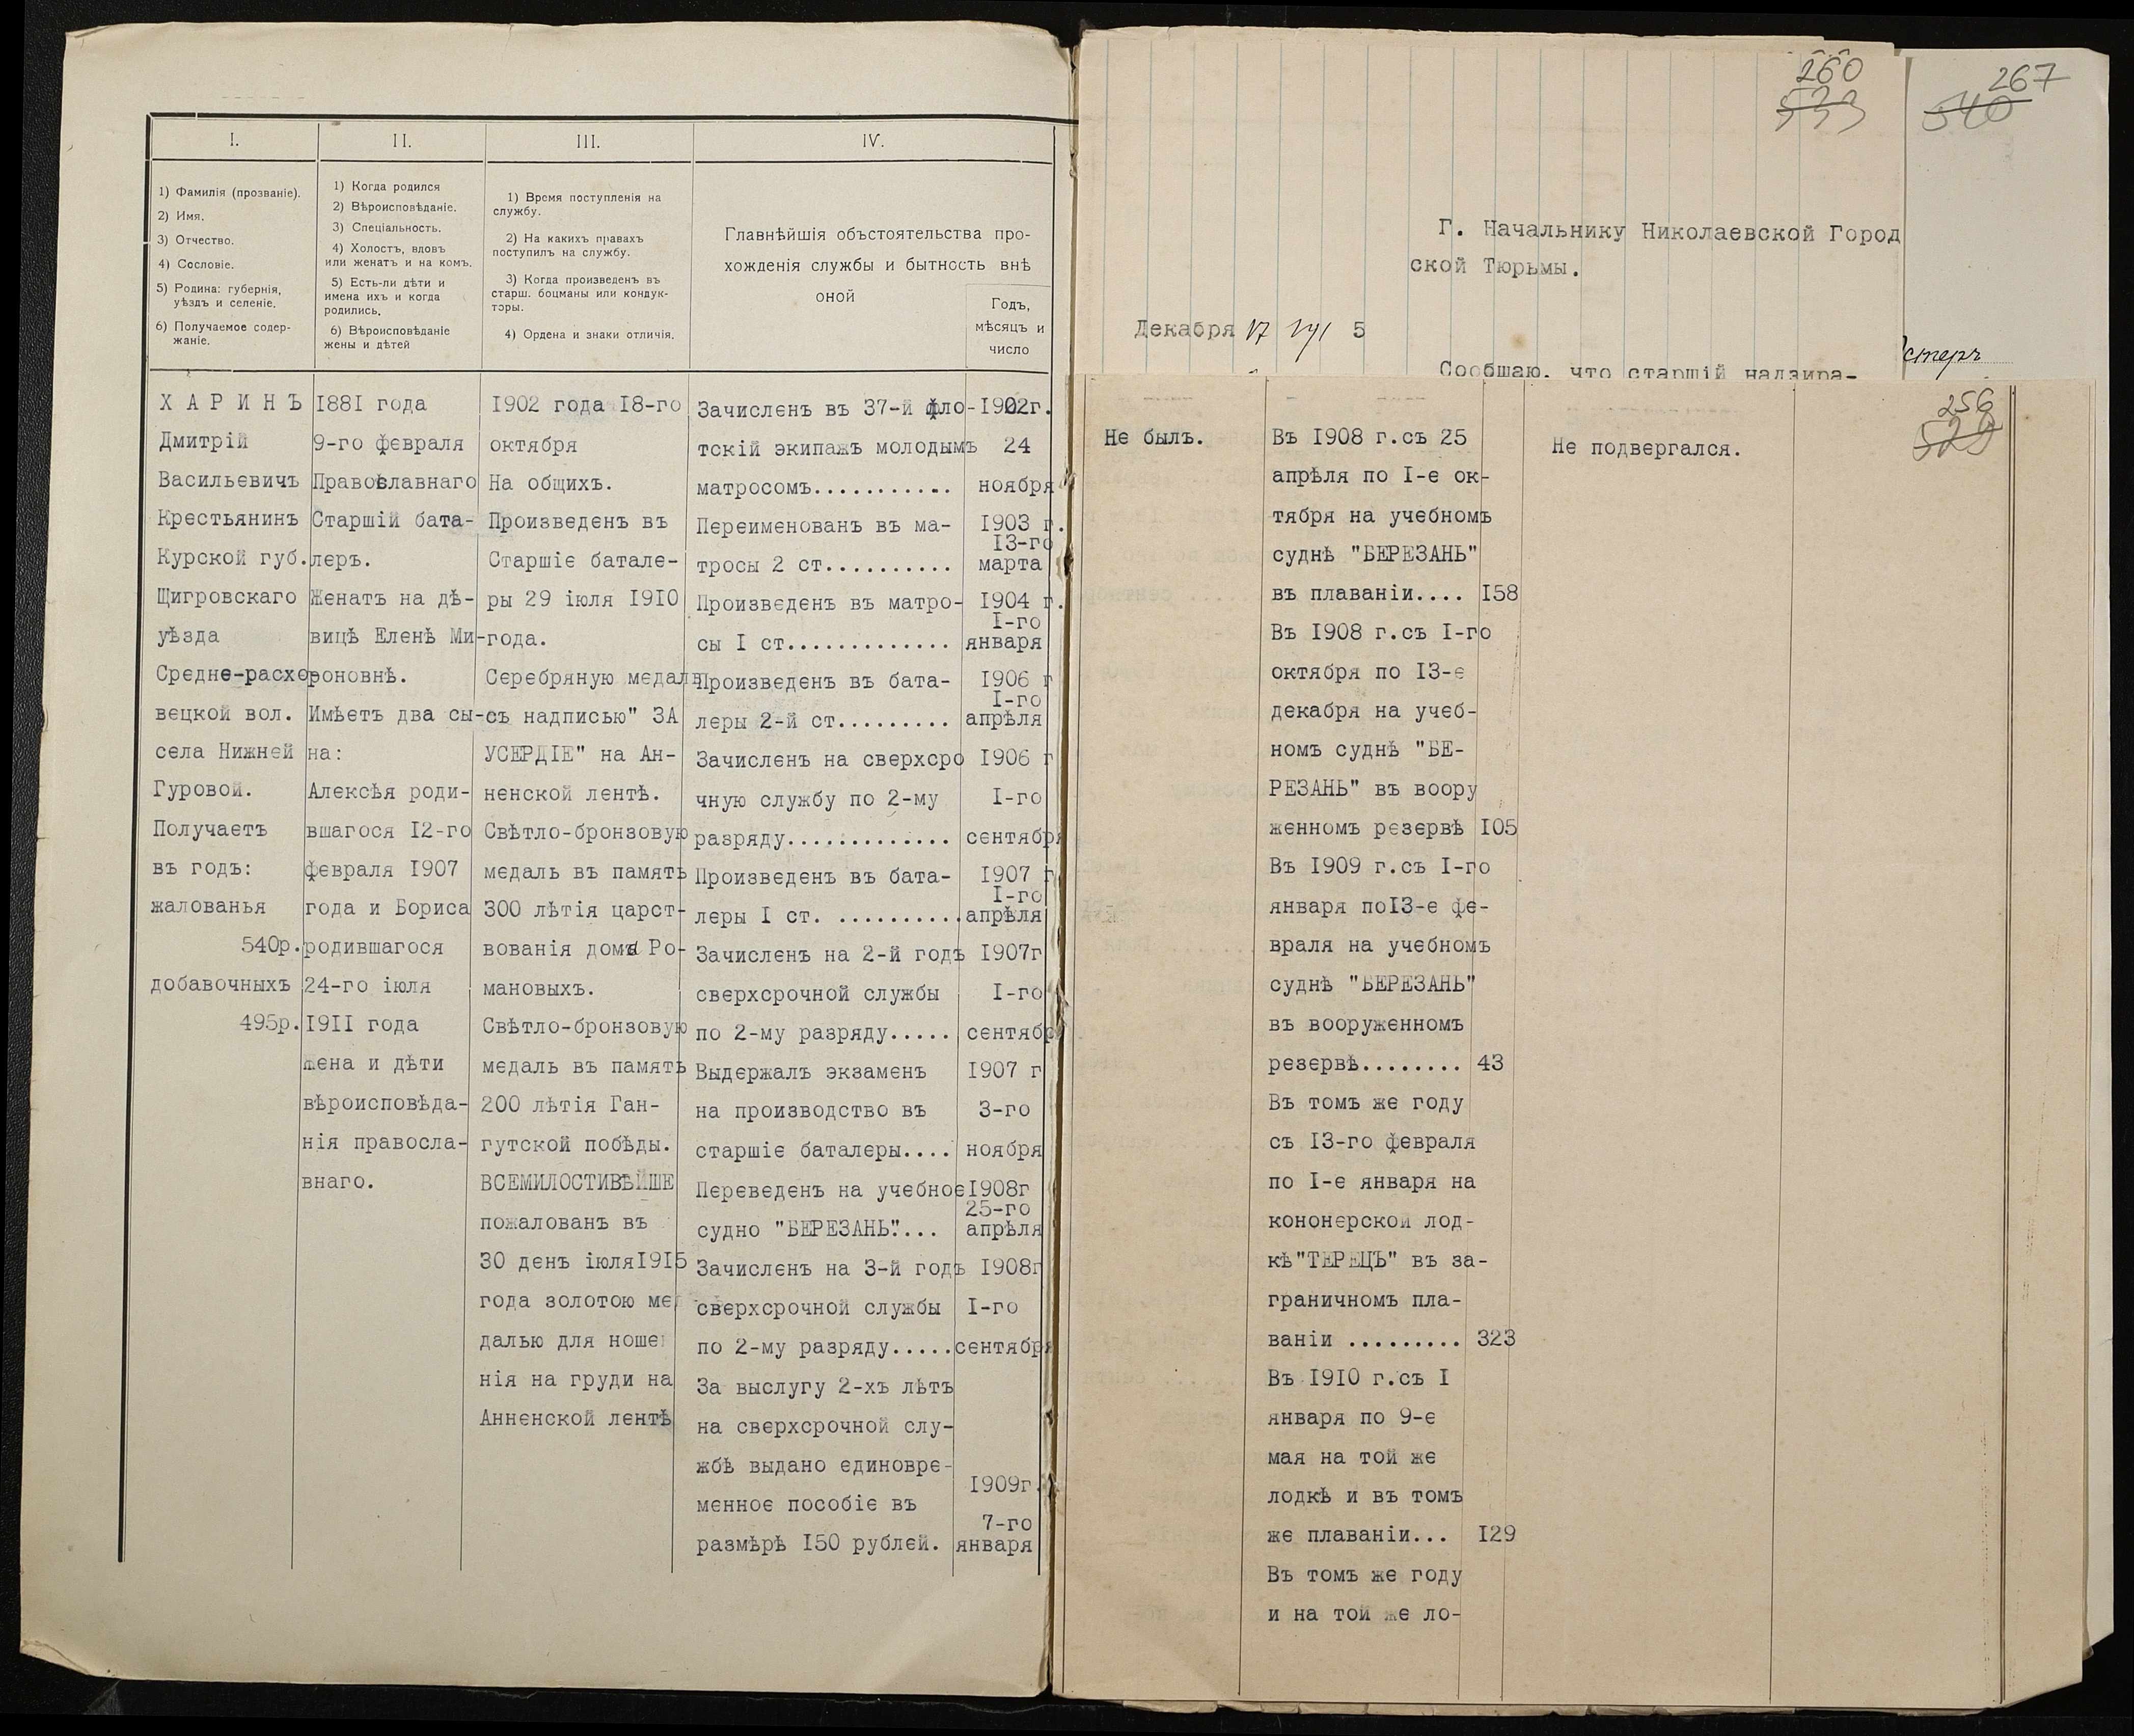 I.
1) Фамилія (прозваніе).
2) Имя.
3) Отчество.
4) Сословіе.
5) Родина: губернія,
уѣздъ и селеніе.
6) Получаемое содер-
жаніе.
II.
1) Когда родился
2) Вѣроисповѣданіе.
3) Спеціальность.
4) Холостъ, вдовъ
или женатъ и на комъ.
5) Есть-ли дѣти и
имена ихъ и когда
родились.
6) Вѣроисповѣданіе
жены и дѣтей
III.
1) Время поступленія на
службу.
2) На какихъ правахъ
поступилъ на службу.
3) Когда произведенъ въ
старш. боцманы или кондук-
торы.
4) Ордена и знаки отличія.
IV.
Главнѣйшія объстоятельства про-
хожденія службы и бытность внѣ
оной
Годъ,
мѣсяцъ и
число
Х А Р И Н Ъ
Дмитрій
Васильевичъ
Крестьянинъ
Курской губ.
Щигровскаго
уѣзда
Средне-расхо-
вецкой вол.
села Нижней
Гуровой.
Получаетъ
въ годъ:
жалованья
540р.
добавочныхъ
495р.
1881 года
9-го февраля
Православнаго
Старшій бата-
леръ.
Женатъ на дѣ-
вицѣ Еленѣ Ми-
роновнѣ.
Имѣетъ два сы-
на:
Алексѣя роди-
вшагося 12-го
февраля 1907
года и Бориса
родившагося
24-го іюля
1911 года
жена и дѣти
вѣроисповѣда-
нія правосла-
внаго.
1902 года 18-го
октября
На общихъ.
Произведенъ въ
Старшіе батале-
ры 29 іюля 1910
года.
Серебряную медаль
съ надписью" ЗА
УСЕРДІЕ" на Ан-
ненской лентѣ.
Свѣтло-бронзовую
медаль въ память
300 лѣтія царст-
вованія дома Ро-
мановыхъ.
Свѣтло-бронзовую
медаль въ память
200 лѣтія Ган-
гутской побѣды.
ВСЕМИЛОСТИВѢЙШЕ
пожалованъ въ
30 день іюля1915
года золотою ме
далью для ноше
нія на груди на
Анненской лентѣ
Зачисленъ въ 37-й фло- 1902г.
тскій экипажъ молодымъ 24
матросомъ........... ноября
Переименованъ въ ма- 1903 г.
13-го
тросы 2 ст.......... марта
Произведенъ въ матро- 1904 г.
1-го
сы I ст............. января
Произведенъ въ бата- 1906 г
1-го
леры 2-й ст......... апрѣля
Зачисленъ на сверхсро 1906 г
чную службу по 2-му 1-го
разряду............. сентября
Произведенъ въ бата- 1907 г
1-го
леры I ст. .......... апрѣля
Зачисленъ на 2-й годъ 1907г
сверхсрочной службы 1-го
по 2-му разряду..... сентябр
Выдержалъ экзаменъ 1907 г
на производство въ 3-го
старшіе баталеры.... ноября
Переведенъ на учебное 1908г
25-го
судно "БЕРЕЗАНЬ".... апрѣля
Зачисленъ на 3-й годъ 1908г
сверхсрочной службы 1-го
по 2-му разряду..... сентября
За выслугу 2-хъ лѣтъ
на сверхсрочной слу-
жбѣ выдано единовре-
1909г.
менное пособіе въ
7-го
размѣрѣ 150 рублей. января
260
533
267
540
Г. Начальнику Николаевской Город
ской Тюрьмы.
Декабря 17 191 5
Сообщаю, что старшій надзира-
стерч
256
529
Не былъ.
Въ 1908 г.съ 25
апрѣля по 1-е ок-
тября на учебномъ
суднѣ "БЕРЕЗАНЬ"
въ плаваніи.... 158
Въ 1908 г.съ 1-го
октября по 13-е
декабря на учеб-
номъ суднѣ "БЕ-
РЕЗАНЬ" въ воору
женномъ резервѣ 105
Въ 1909 г.съ 1-го
января по13-е фе-
враля на учебномъ
суднѣ "БЕРЕЗАНЬ"
въ вооруженномъ
резервѣ........ 43
Въ томъ же году
съ 13-го февраля
по 1-е января на
кононерской лод-
кѣ"ТЕРЕЦЪ" въ за-
граничномъ пла-
ваніи ......... 323
Въ 1910 г.съ 1
января по 9-е
мая на той же
лодкѣ и въ томъ
же плаваніи... 129
Въ томъ же году
и на той же ло-
Не подвергался.